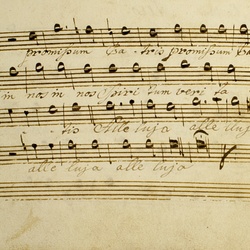 promissum Pa_ tris promissum Pa
in nos in nos Spiri tum veri ta
_ tis Alle luja alle luj
alle luja alle luja